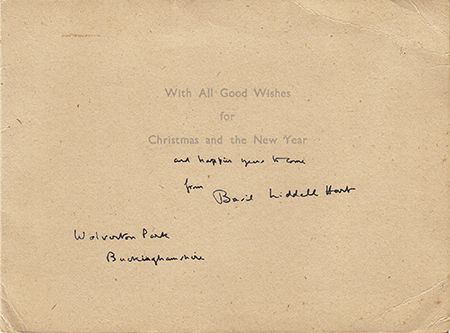 With All Good Wishes
for
Christmas and the New Year
and happier years to come
from Basil Liddell Hart
Wolverton Park
Buckinghamshire